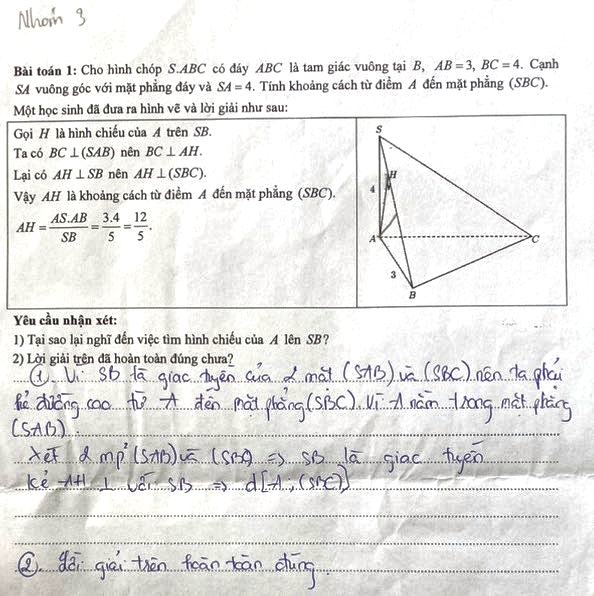 Nhóm 3
Bài toán 1: Cho hình chóp S.ABC có đáy ABC là tam giác vuông tại B, AB = 3, BC = 4. Cạnh
SA vuông góc với mặt phẳng đáy và SA = 4. Tính khoảng cách từ điểm A đến mặt phẳng (SBC).
Một học sinh đã đưa ra hình vẽ và lời giải như sau:
Gọi H là hình chiếu của A trên SB.
Ta có BC ⊥ (SAB) nên BC ⊥ AH.
Lại có AH ⊥ SB nên AH ⊥ (SBC).
Vậy AH là khoảng cách từ điểm A đến mặt phẳng (SBC).
AH = AS.AB/SB = 3.4/5 = 12/5.
S
H
4
A
C
3
B
Yêu cầu nhận xét:
1) Tại sao lại nghĩ đến việc tìm hình chiếu của A lên SB?
2) Lời giải trên đã hoàn toàn đúng chưa?
①. Vì SB là giac tuyến của 2 mặt (SAB) và (SBC) nên ta phải
kẻ đường cao từ A đến mặt phẳng (SBC). Vì A nằm trong mặt phẳng
(SAB)
Xét 2 mp (SAB) và (SBC) ⇒ SB là giac tuyến
kẻ AH ⊥ với SB ⇒ d[A; (SBC)]
②. Lời giải trên hoàn toàn đúng.